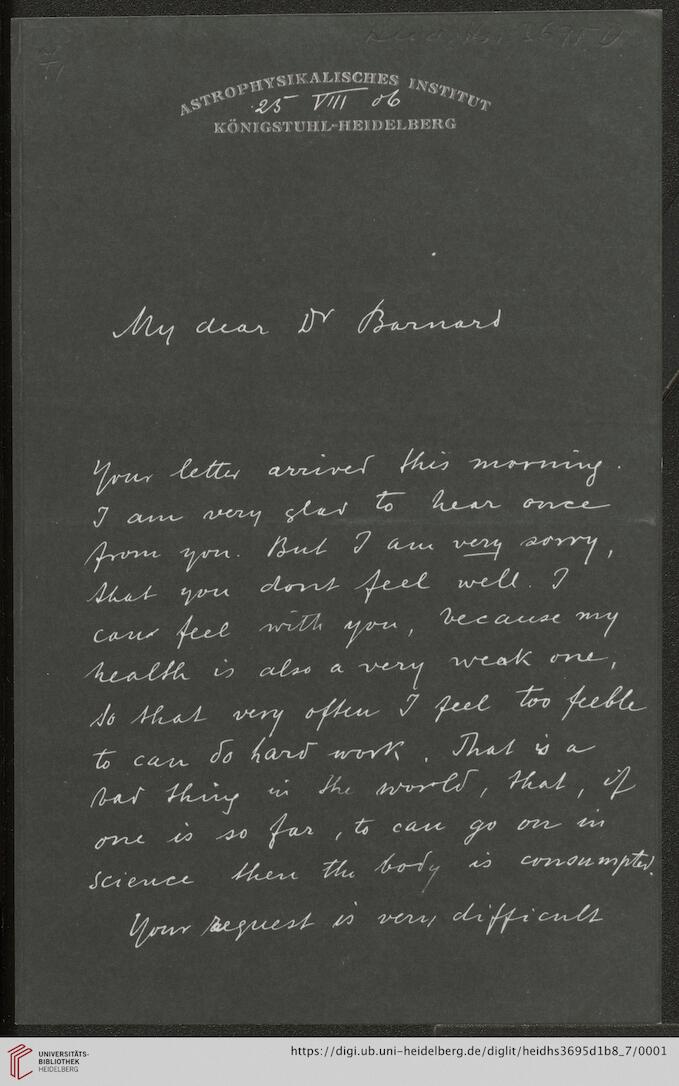 Heid. Hs. 3695 D
ASTROPHYSIKALISCHES INSTITUT
25 VIII 06
KÖNIGSTUHL-HEIDELBERG
My dear Dr Barnard
Your letter arrived this morning.
I am very glad to hear once
from you. But I am very sorry,
that you dont feel well. I
can feel with you, because my
health is also a very weak one,
so that very often I feel too feeble
to can do hard work. That is a
bad thing in the world, that, if
one is so far, to can go on in
science then the body is consumpted.
Your request is very difficult
UNIVERSITÄTS-
BIBLIOTHEK
HEIDELBERG
https://digi.ub.uni-heidelberg.de/diglit/heidhs3695d1b8_7/0001